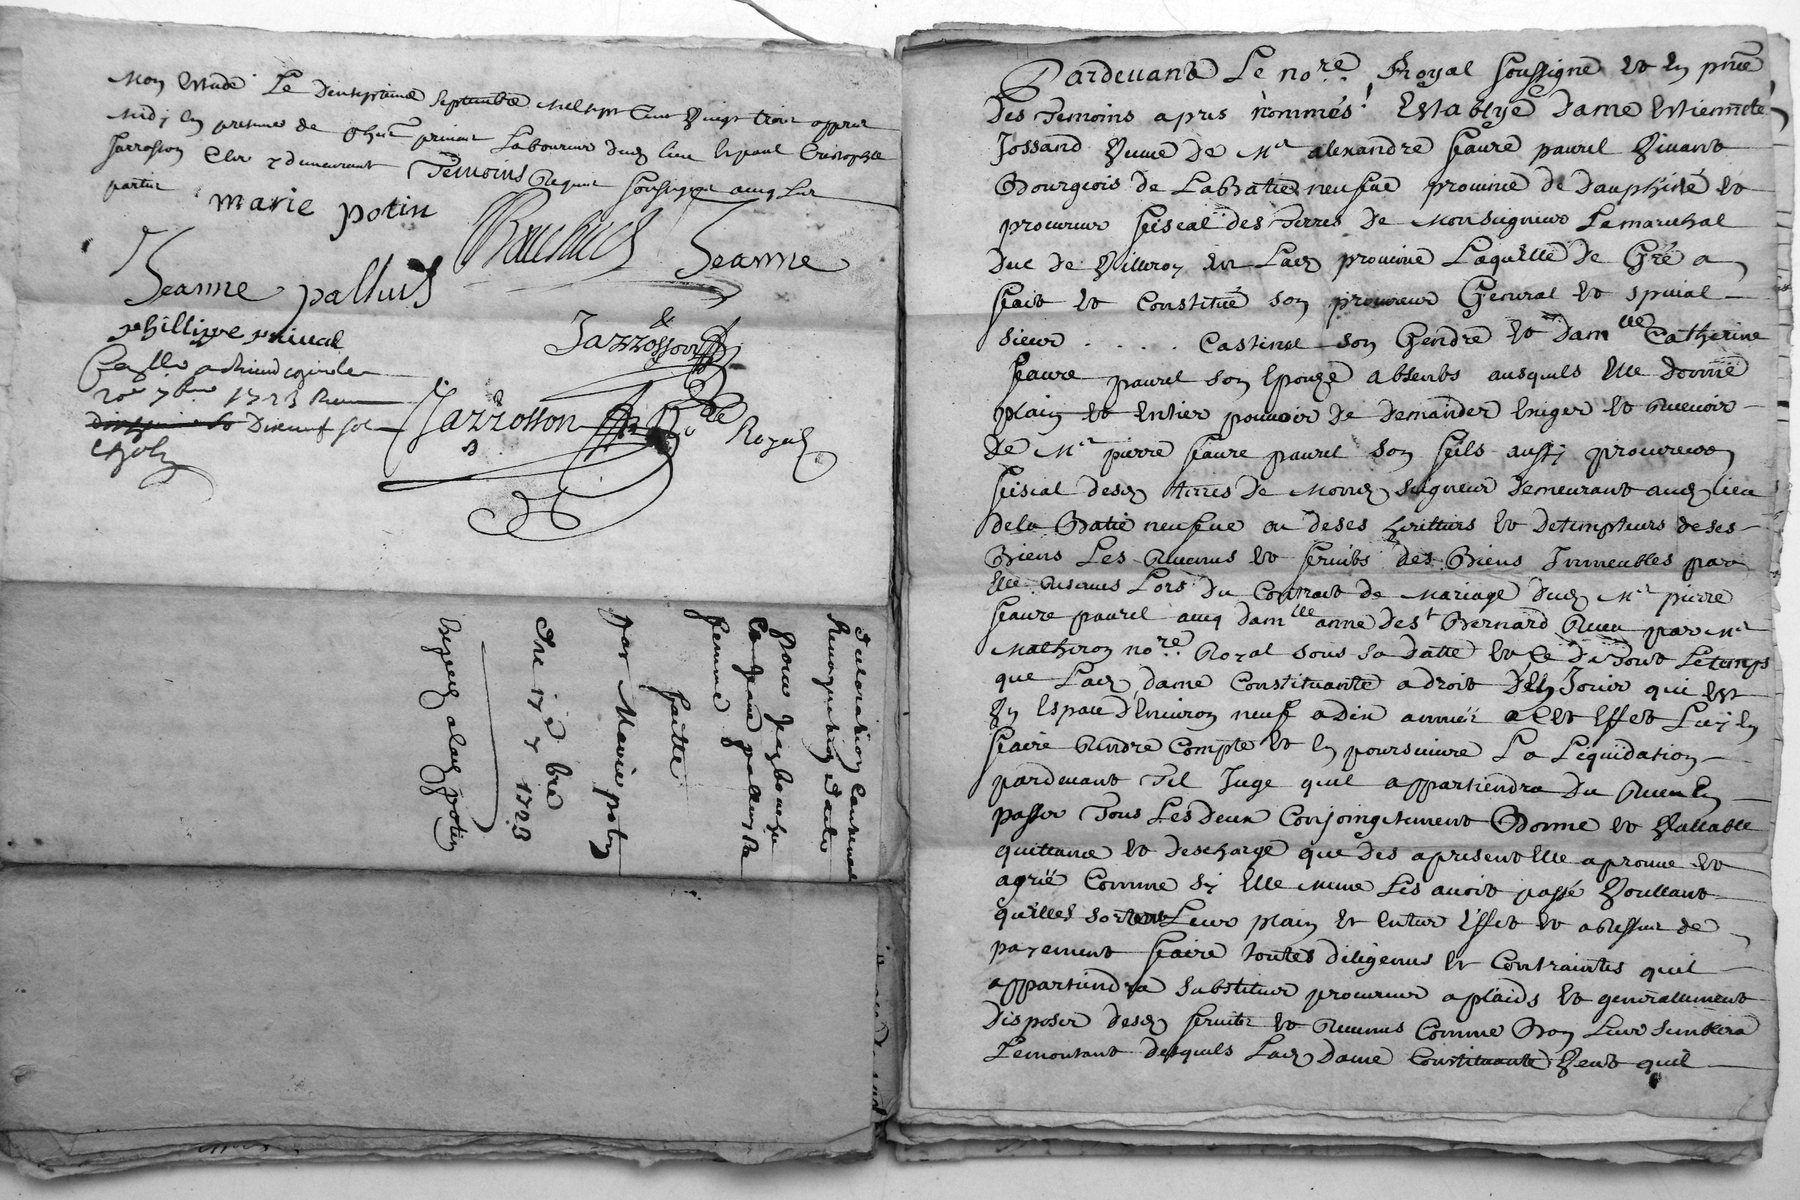 Mon Estude Le dixseptieme septembre mil sept Cent Vingt trois appres
midy En presence de phili. prival Laboureur dud. lieu Et paul Cristophle
Jarrosson Clerc y demeurant Temoins Requis soussignes avec Les
parties
marie potin
Jeanne
Jeanne palluis
phillippe prival
Jarrosson
Con.lle a
20e 7bre 1723 Receu
Dixneuf sol
Jarrosson No.re Royal
Declaration
Revocation
pour
Jeanne palluis sa
femme
faitte
par Marie potin
Du 17e 7bre 1723
Expedié a lad. potin
Pardevant Le no.re Royal soussigné Et En p.nce
Des Temoins apres nommés! Establye Dame Estiennete
Jossand Veuve De M.r alexandre faure paurel Vivant
Bourgeois de LaBatie neufve province de Dauphiné Et
procureur fiscal des Terres De Monseigneur Le marechal
Duc de Villeroy En Lad. province Laquelle De Gré a
fait Et Constitué son procureur General Et special
sieur . . . . . Castinel son Gendre Et Dam.lle Catherine
faure paurel son Epouze absents ausquels Elle donne
plain Et Entier pouvoir De demander Exiger Et Recevoir
De M.r pierre faure paurel son fils aussy procureur
fiscal desd. terres De Mond. seigneur Demeurant aud. lieu
dela Batie neufve ou deses heritiers Et Detempteurs deses
Biens Les Revenus Et fruits des Biens Immeubles par
Elle Reservés Lors Du Contrat de Mariage dud. M.r pierre
faure paurel avec Dam.lle anne Des.t Bernard Receu par M.r
Matheron no.re Royal sous sa Datte Et Ce Durant Letemps
que Lad. Dame Constituante a droit D'En Jouir qui Est
En Espace d'Environ neuf a dix années a cet Effet Luy En
faire Rendre Compte Et En poursuivre La Liquidation
pardevant Tel Juge quil appartiendra Du Receu En
passer Tous Les deux Conjoingtement Bonne Et Vallable
quittance Et descharge que des apresent Elle aprouve Et
agrée Comme sy Elle meme Les avoit passé Voullant
quelles sortent Leur plain Et Entier Effet Et a deffaut de
payement faire toutes diligences Et Contraintes quil
appartiendra substituer procureur a plaids Et generallement
Disposer desd. fruits Et Revenus Comme Bon Leur semblera
Lemontant desquels Lad. Dame Constituante Veut quil